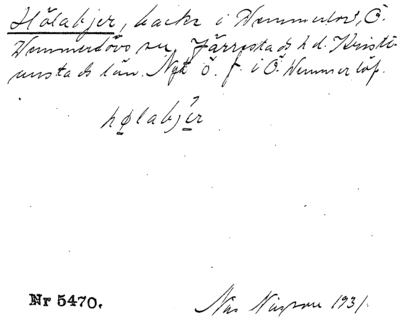 Hölabjer, backe i Vemmerlöv, Ö.
Vemmerlövs sn, Järrestads hd. Kristi-
anstads län. ö. f. i Ö. Vemmerlöf.
hølabjer
Nr 5470.
Nils 1931.